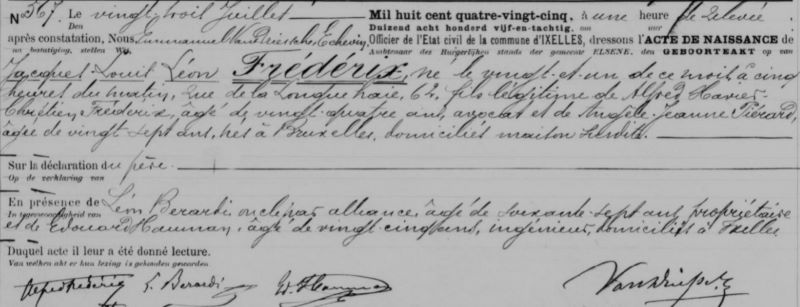 N° 567. Le vingt-trois Juillet Mil huit cent quatre-vingt-cinq, à une heure de relevée
Den Duizend acht honderd vijf-en-tachtig, om uur
après constatation, Nous, Emmanuel Van Driessche, Echevin, Officier de l'Etat civil de la commune d'IXELLES, dressons l'ACTE DE NAISSANCE de
na bestatiging, stellen Wij, Ambtenaar des Burgerlijken stands der gemeente ELSENE, den GEBOORTEAKT op van
Jacques Louis Léon Frédérix, né le vingt-et-un de ce mois à cinq
heures du matin, rue de la Longue haie, 62, fils légitime de Alfred Xavier
Chrétien Frédérix, âgé de vingt-quatre ans, avocat et de Angèle Jeanne Piérard,
âgée de vingt sept ans, nés à Bruxelles, domiciliés maison susdite.
Sur la déclaration du père.
Op de verklaring van
En présence de Léon Berardi, oncle par alliance, âgé de soixante-sept ans, propriétaire
In tegenwoordigheid van
et de Edouard Hauman, âgé de vingt-cinq ans, ingénieur, domiciliés à Ixelles
Duquel acte il leur a été donné lecture.
Van welken akt er hun lezing is gehouden geworden.
Alfred Frédérix L. Berardi Ed Hauman